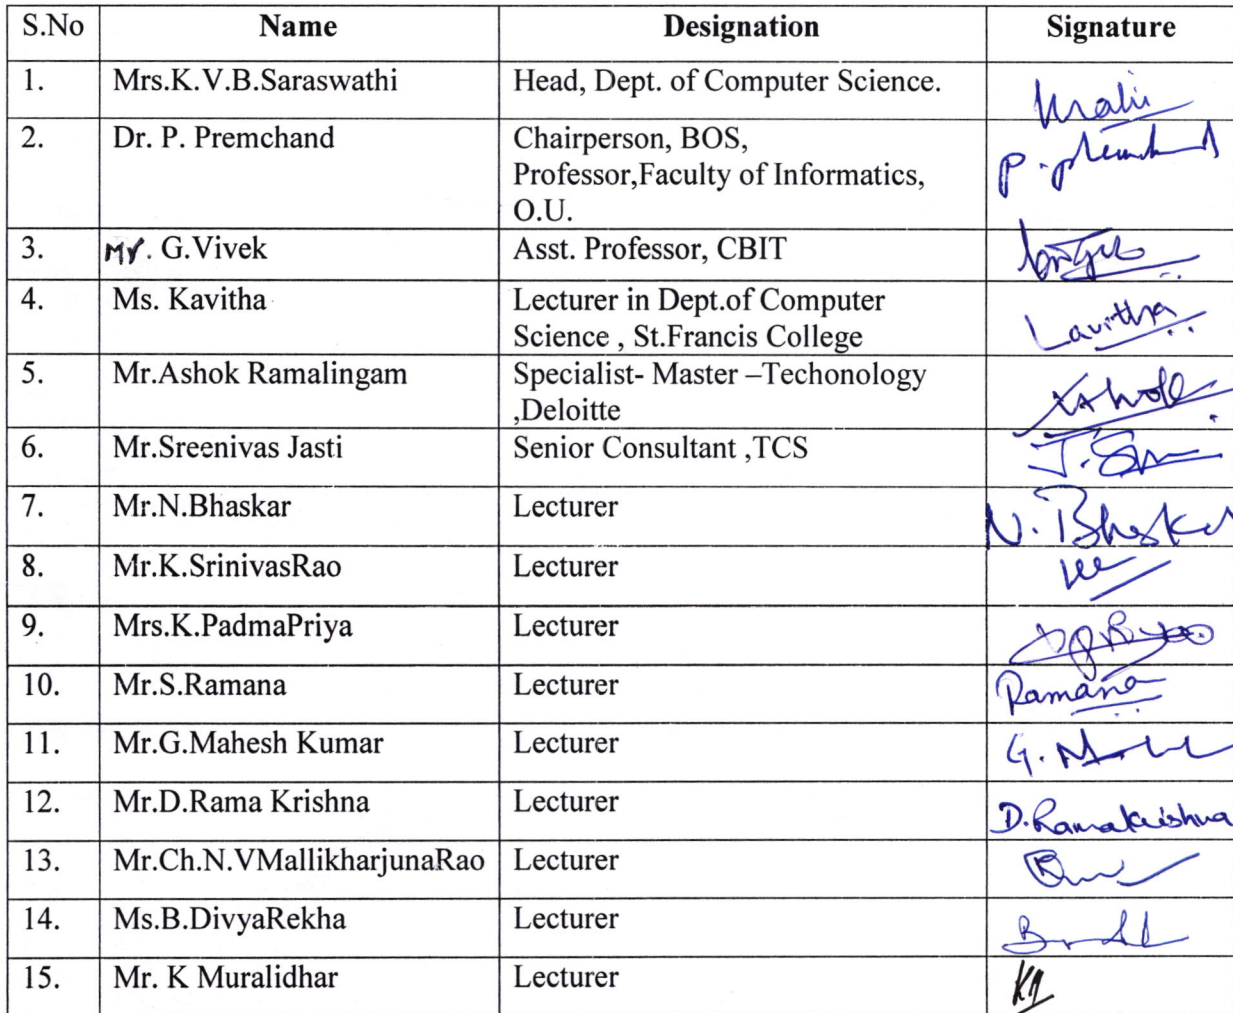 S.No Name Designation Signature
1. Mrs.K.V.B.Saraswathi Head, Dept. of Computer Science.
2. Dr. P. Premchand Chairperson, BOS,
Professor,Faculty of Informatics,
O.U.
P. Premchand
3. Mr. G.Vivek Asst. Professor, CBIT
4. Ms. Kavitha Lecturer in Dept.of Computer
Science , St.Francis College
Kavitha
5. Mr.Ashok Ramalingam Specialist- Master –Techonology
,Deloitte
Ashok
6. Mr.Sreenivas Jasti Senior Consultant ,TCS
7. Mr.N.Bhaskar Lecturer N. Bhaskar
8. Mr.K.SrinivasRao Lecturer
9. Mrs.K.PadmaPriya Lecturer
10. Mr.S.Ramana Lecturer Ramana
11. Mr.G.Mahesh Kumar Lecturer
12. Mr.D.Rama Krishna Lecturer D.Ramakrishna
13. Mr.Ch.N.VMallikharjunaRao Lecturer
14. Ms.B.DivyaRekha Lecturer
15. Mr. K Muralidhar Lecturer